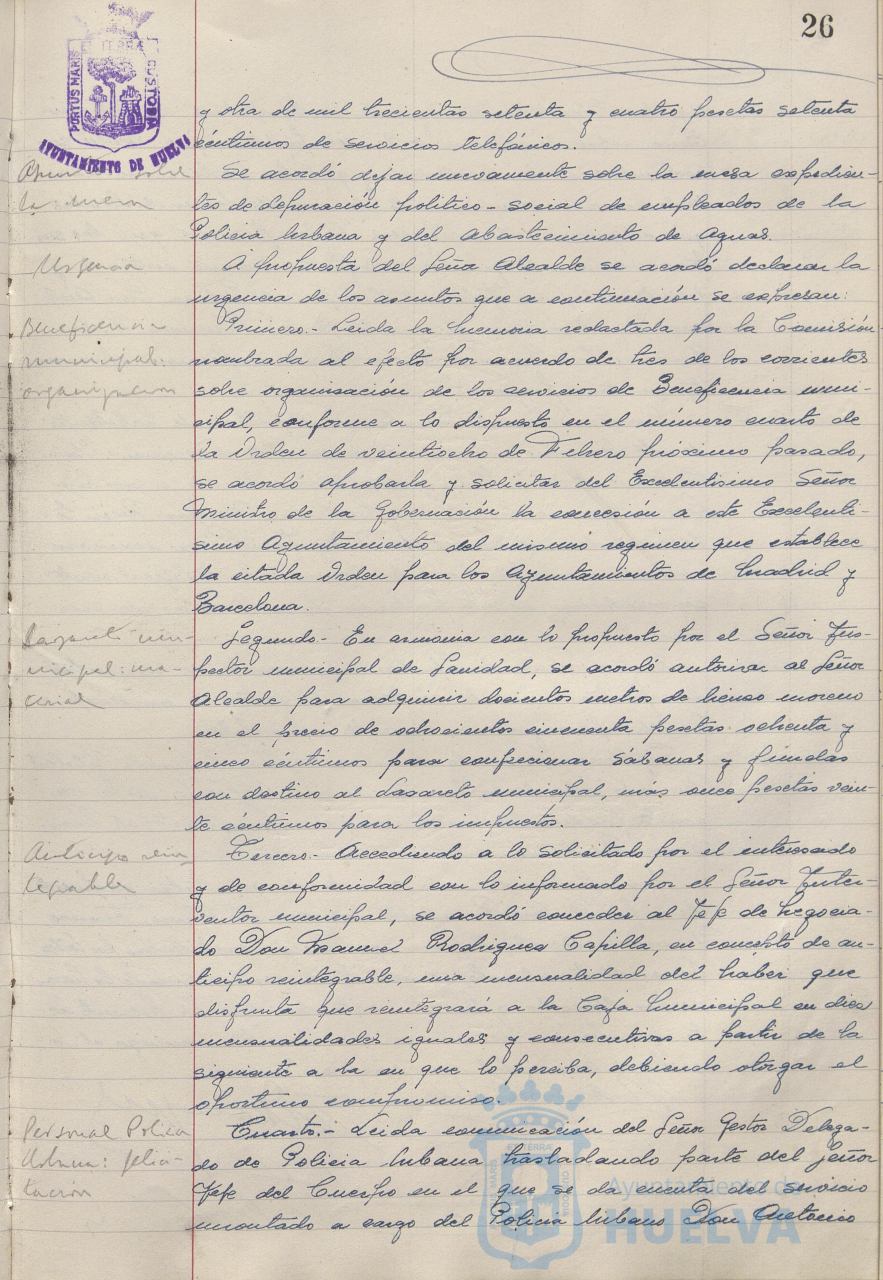 26
PORTUS MARIS ET TERRAE CUSTODIA
AYUNTAMIENTO DE HUELVA
y otra de mil trecientas setenta y cuatro pesetas setenta
céntimos de servicios telefónicos.
sobre
la mesa
Se acordó dejar nuevamente sobre la mesa expedien-
tes de depuración político-social de empleados de la
Policía Urbana y del Abastecimiento de Aguas.
Urgencia
A propuesta del Señor Alcalde se acordó declarar la
urgencia de los asuntos que a continuación se expresan:
Beneficencia
municipal:
organización
Primero.- Leida la Memoria redactada por la Comisión
nombrada al efecto por acuerdo de tres de los corrientes
sobre organización de los servicios de Beneficencia muni-
cipal, conforme a lo dispuesto en el número cuarto de
la Orden de veintiocho de Febrero próximo pasado,
se acordó aprobarla y solicitar del Excelentísimo Señor
Ministro de la Gobernación la concesión a este Excelentí-
simo Ayuntamiento del mismo regimen que establece
la citada Orden para los Ayuntamientos de Madrid y
Barcelona.
municipal: ma-
terial
Segundo.- En armonia con lo propuesto por el Señor Ins-
pector municipal de Sanidad, se acordó autorizar al Señor
Alcalde para adquirir docientos metros de lienzo moreno
en el precio de ochocientos cincuenta pesetas ochenta y
cinco céntimos para confeccionar sábanas y fundas
con destino al Lazareto municipal, más once pesetas vein-
te céntimos para los impuestos.
Anticipo rein-
tegrable
Tercero.- Accediendo a lo solicitado por el interesado
y de conformidad con lo informado por el Señor Inter-
ventor municipal, se acordó conceder al Jefe de Negocia-
do Don Manuel Rodriguez Capilla, en concepto de an-
ticipo reintegrable, una mensualidad del haber que
disfruta que reintegrará a la Caja Municipal en diez
mensualidades iguales y consecutivas a partir de la
siguiente a la en que lo perciba, debiendo otorgar el
oportuno compromiso.
Personal Policía
Urbana: felici-
tación
Cuarto.- Leida comunicación del Señor Gestor Delega-
do de Policía Urbana trasladando parte del Señor
Jefe del Cuerpo en el que se da cuenta del servicio
montado a cargo del Policía Urbano Don Antonio
Ayuntamiento de
HUELVA